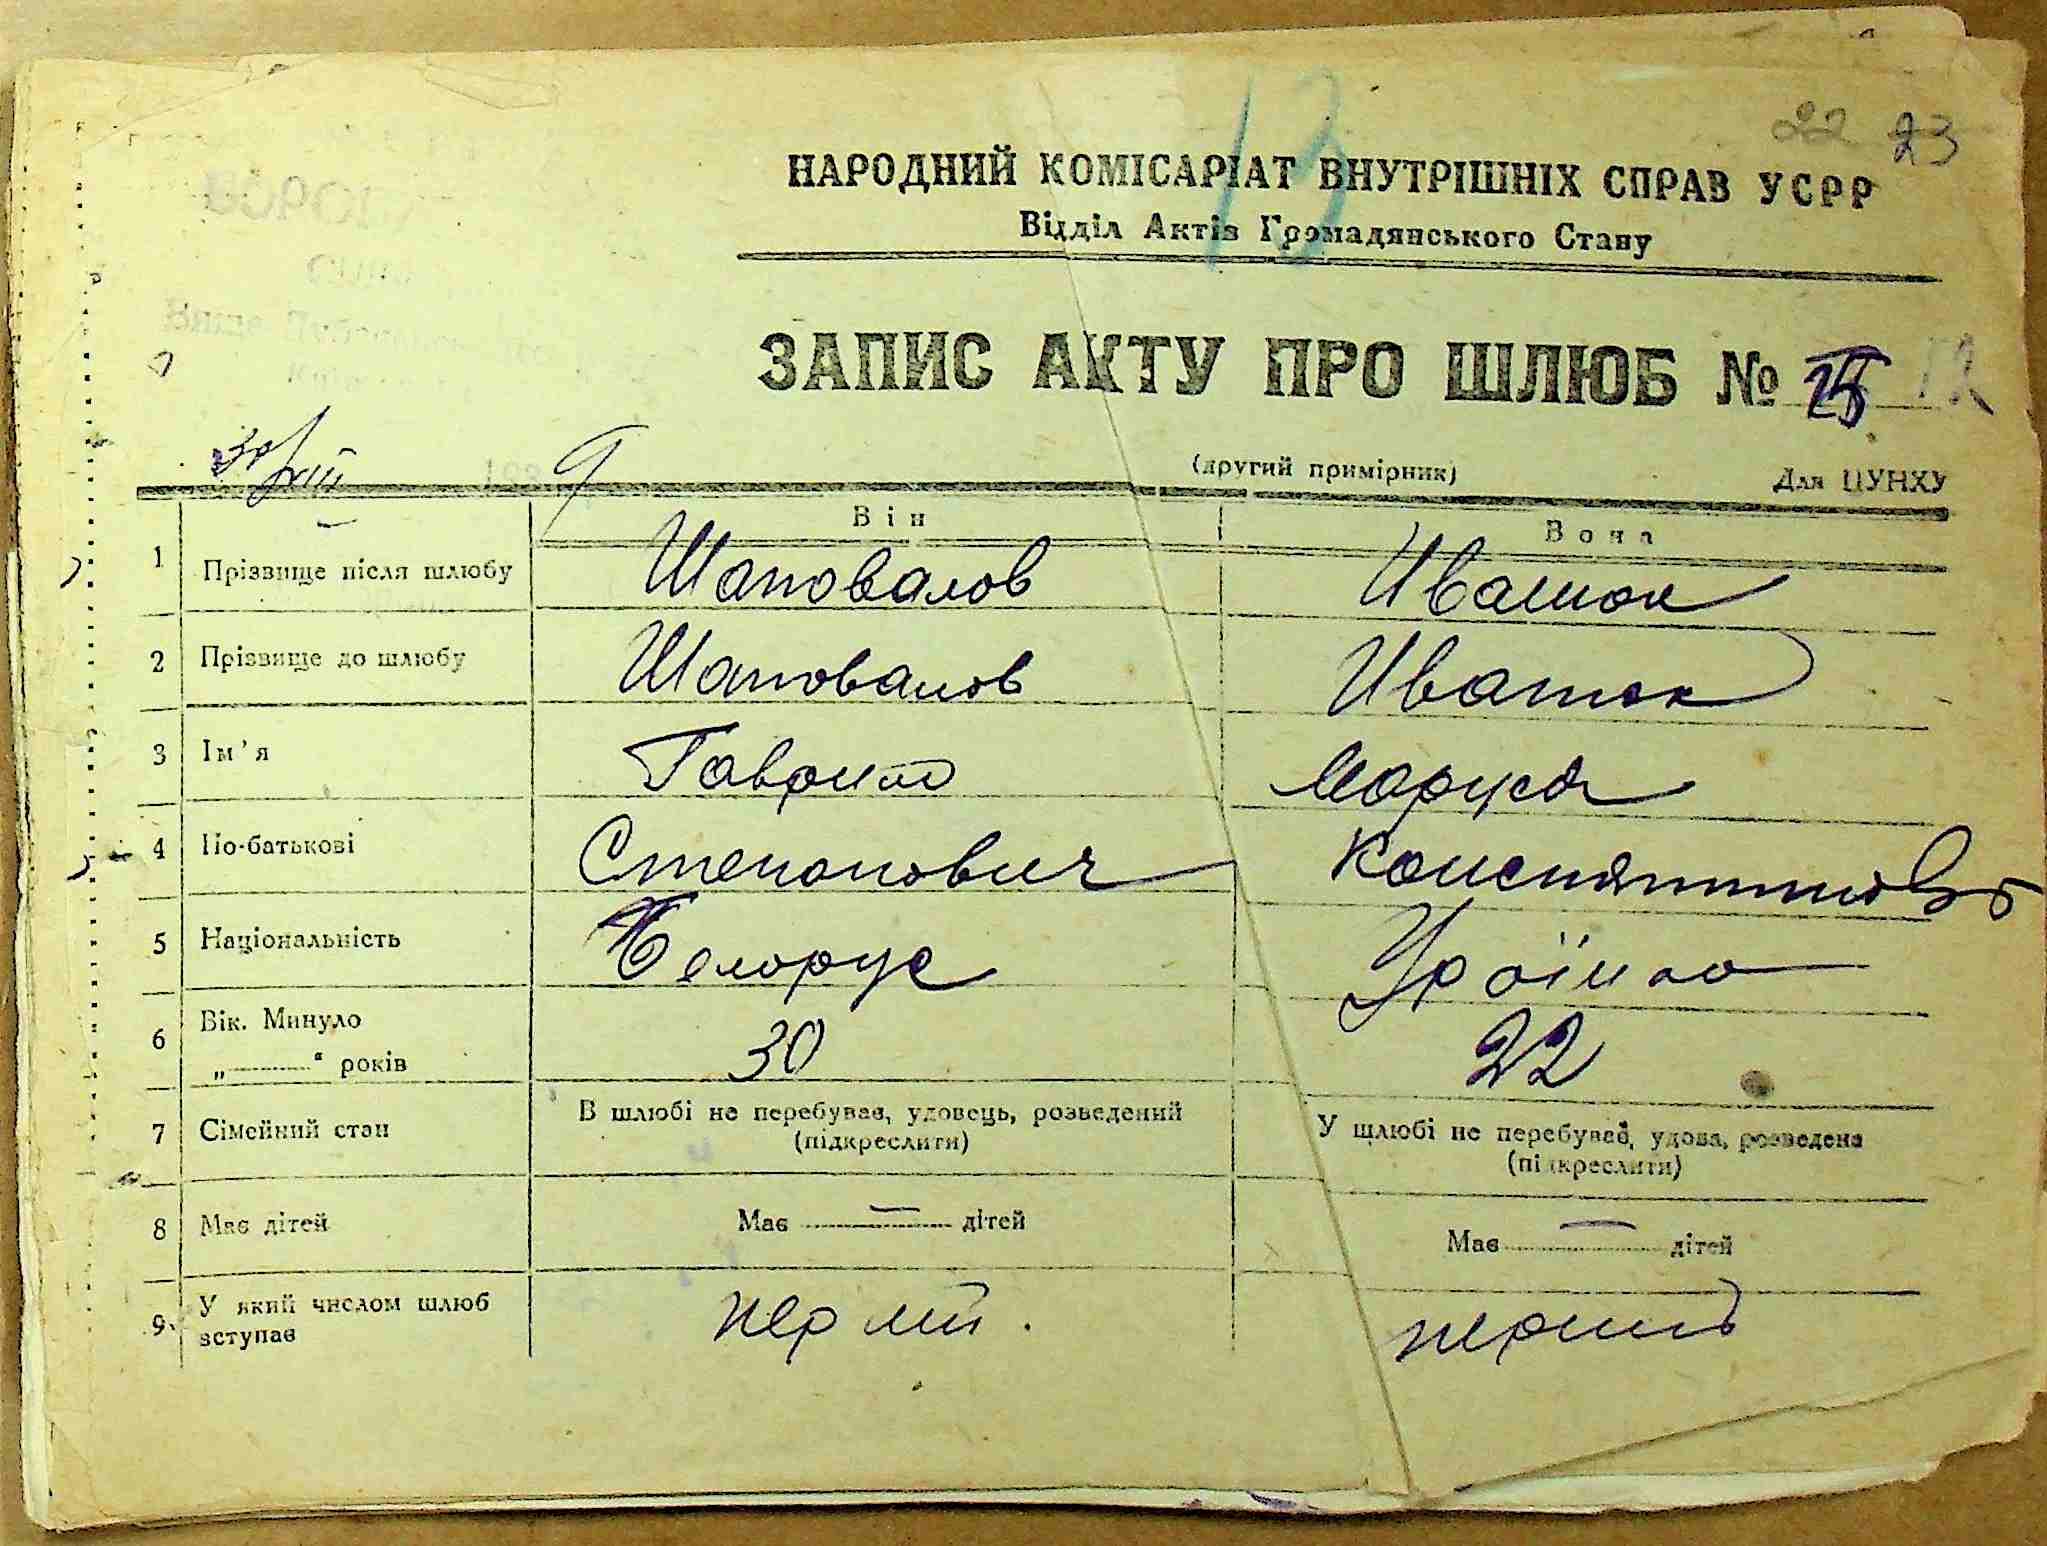 13
22 23
НАРОДНИЙ КОМІСАРІАТ ВНУТРІШНІХ СПРАВ УСРР
Відділ Актів Громадянського Стану
ЗАПИС АКТУ ПРО ШЛЮБ № 25 12
30/VIII 1939
(другий примірник) Для ЦУНХУ
Він Вона
1 Прізвище після шлюбу Шаповалов Ивашок
2 Прізвище до шлюбу Шаповалов Ивашок
3 Ім'я Гаврило Маруся
4 По-батькові Степанович Константиновна
5 Національність Белорус Украінка
6 Вік. Минуло „ “ років 30 22
7 Сімейний стан В шлюбі не перебував, удовець, розведений (підкреслити) У шлюбі не перебував, удова, розведена (підкреслити)
8 Має дітей Має — дітей Має — дітей
9 У який числом шлюб вступає перший. перший